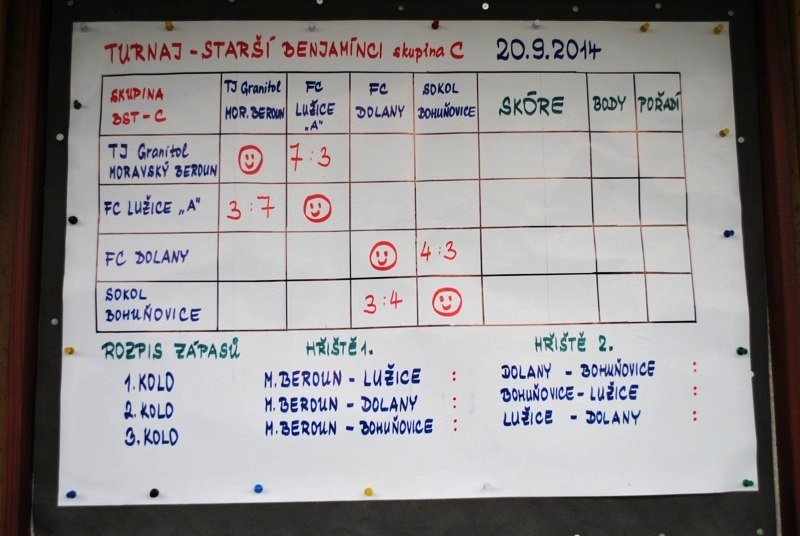 TURNAJ - STARŠÍ BENJAMÍNCI skupina C 20.9.2014
SKUPINA BST - C TJ Granitol MOR. BEROUN FC LUŽICE „A" FC DOLANY SOKOL BOHUŇOVICE SKÓRE BODY POŘADÍ
TJ Granitol MORAVSKÝ BEROUN 7:3
FC LUŽICE „A" 3:7
FC DOLANY 4:3
SOKOL BOHUŇOVICE 3:4
ROZPIS ZÁPASŮ HŘIŠTĚ 1. HŘIŠTĚ 2.
1. KOLO M. BEROUN - LUŽICE : DOLANY - BOHUŇOVICE :
2. KOLO M. BEROUN - DOLANY : BOHUŇOVICE - LUŽICE :
3. KOLO M. BEROUN - BOHUŇOVICE : LUŽICE - DOLANY :